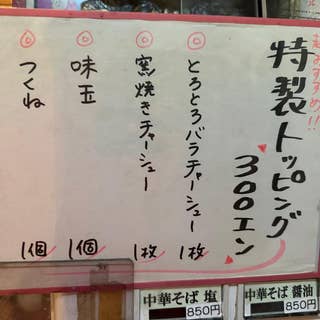 超おすすめ!!
特製トッピング
300エン
とろとろバラチャーシュー 1枚
窯焼きチャーシュー 1枚
味玉 1個
つくね 1個
中華そば 塩
850円
中華そば 醤油
850円